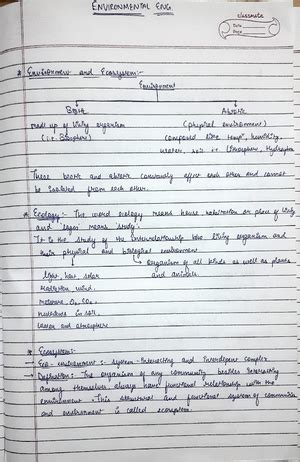 ENVIRONMENTAL ENG.
classmate
Date
Page
* Environment and Ecosystem:-
Environment
Biotic Abiotic
made up of living organism (physical environment)
(i.e. Biosphere) (composed like temp, humidity,
water, soil i.e. Lithosphere, Hydrosphere
These biotic and abiotic continuously affect each other and cannot
be isolated from each other.
* Ecology:- The word ecology means house habitation or place of living
and logos means study.
It is the study of the interrelationship b/w living organism and
their physical and biological environment
light, heat, solar organism of all kinds as well as plants
radiation, wind, and animals.
moisture, O2, CO2,
nutrients in soil,
water and atmosphere
* Ecosystem:-
Eco - environment :- System - Interacting and Interdepent complex.
Defination: The organism of any community besides interacting
among themselves always have functional relationship with the
environment. This structural and functional system of communities
and environment is called ecosystem.